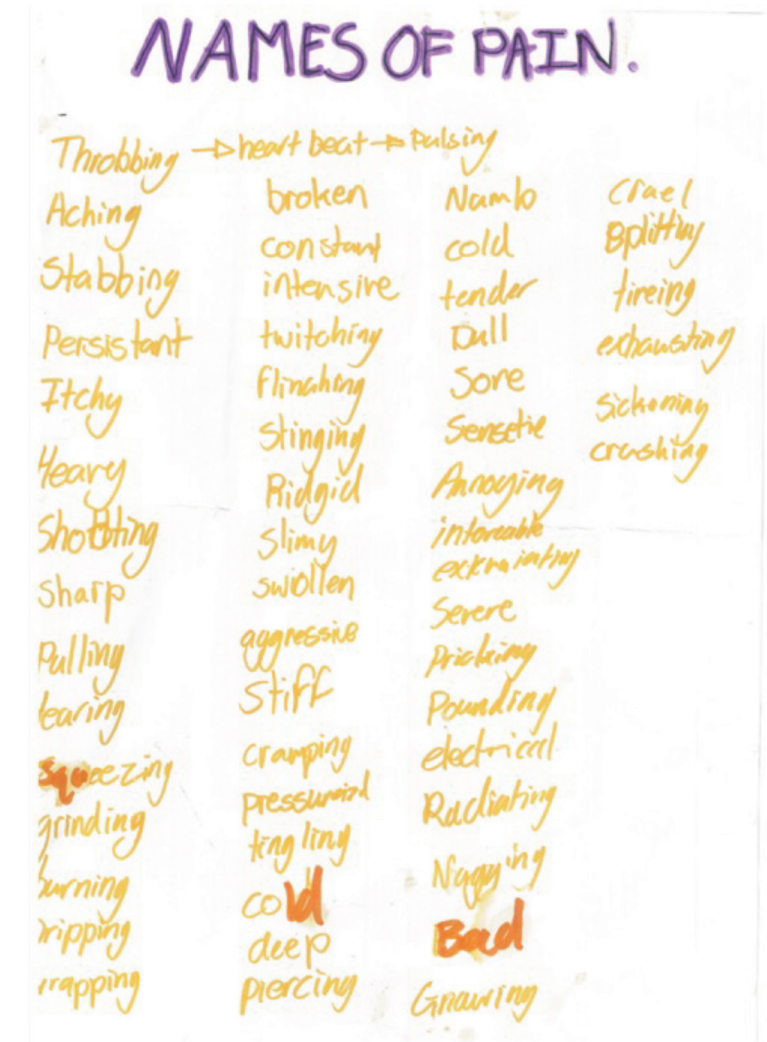 NAMES OF PAIN.
Throbbing → heart beat → Pulsing
Aching
Stabbing
Persistant
Itchy
Heavy
Shooting
Sharp
Pulling
tearing
Squeezing
grinding
burning
ripping
broken
constant
intensive
twitching
flinching
stinging
Ridgid
slimy
swollen
aggressive
stiff
cramping
pressurized
tingling
cold
deep
piercing
Numb
cold
tender
Dull
Sore
Sensetie
Annoying
Severe
Pricking
Pounding
electrical
Radiating
Nagging
Bad
Gnawing
Cruel
Splitting
tireing
exhausting
Sickening
crushing